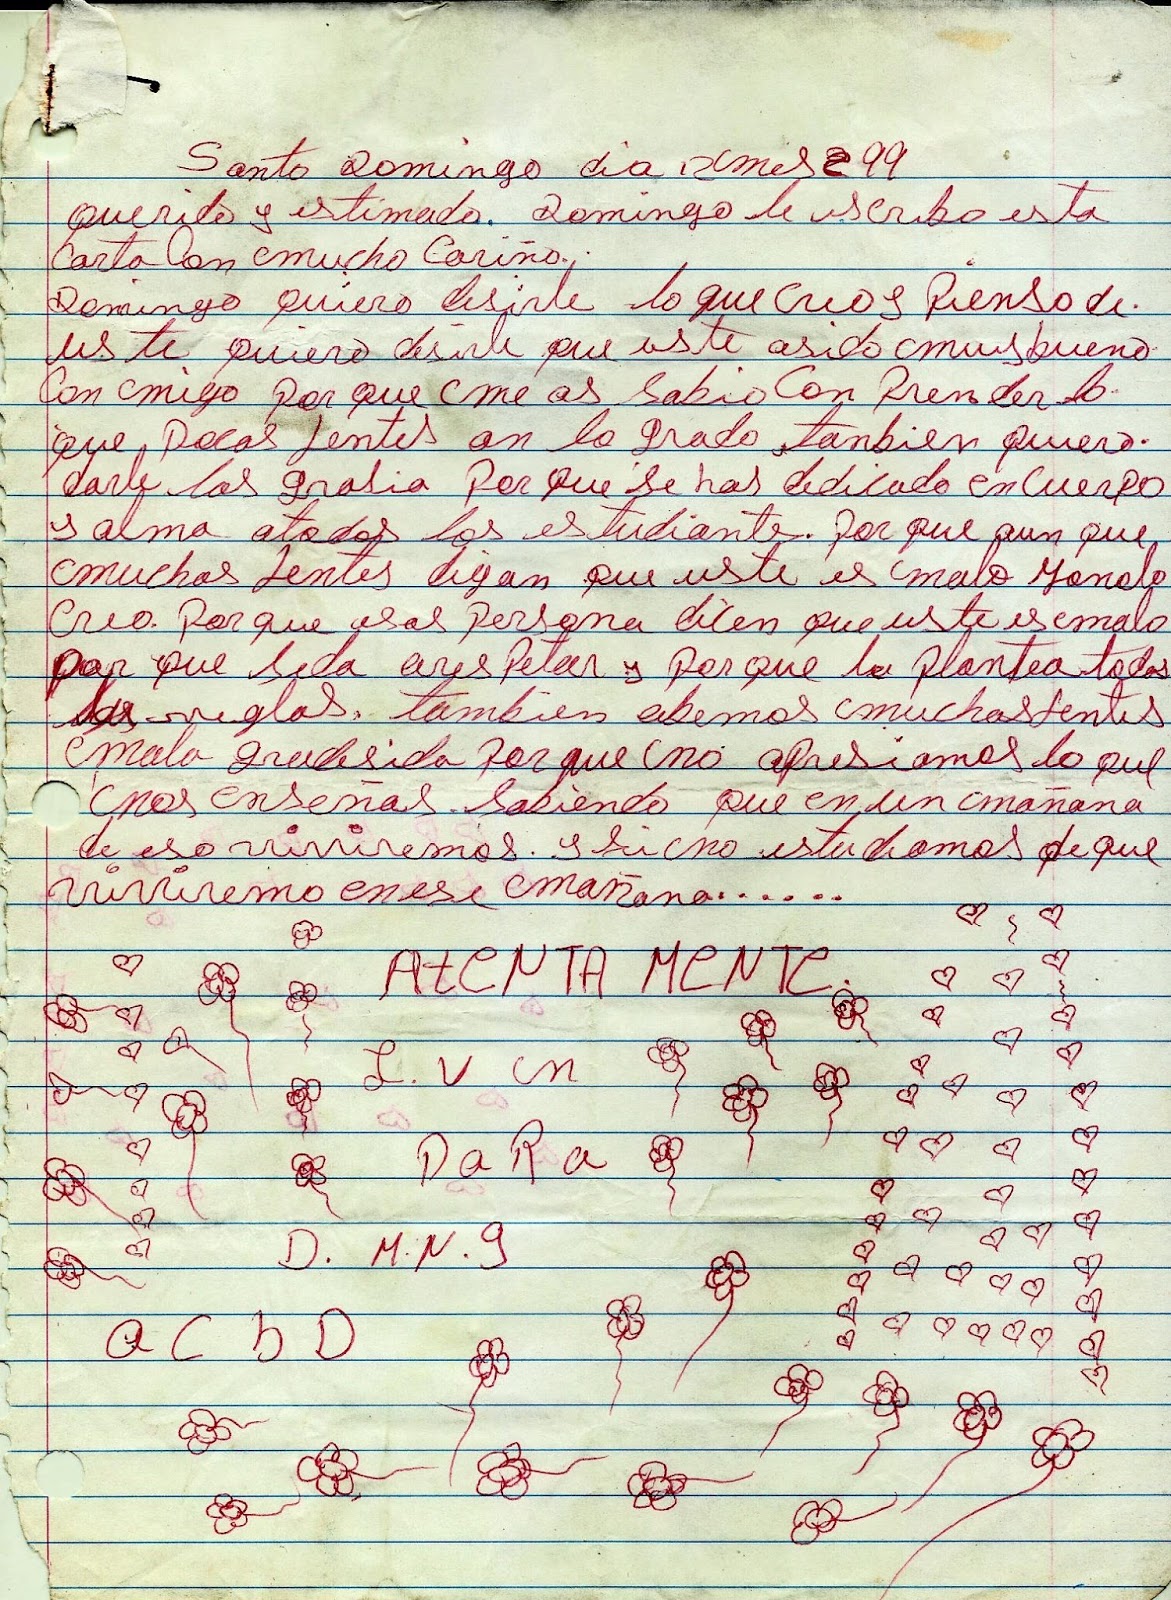 Santo Domingo dia 12 mes 2 99
querido y estimado. Domingo le escribo esta
Carta Con mucho Cariño..
Domingo quiero desirle lo que Creo y Pienso de.
uste quiero desirle que uste asido muy bueno
Con migo Por que me as Sabio Con Prender lo.
que Pocas Jentes an lo grado, tanbien quiero.
darle las grasia Por que se has dedicado en Cuerpo
y alma atodos los estudiante. Por que aun que
muchas Jentes digan que uste es malo yonolo
Creo. Por que esas Persona dicen que uste es malo
por que seda ares Petar y Por que le plantea todas
las reglas. tambien abemos muchas Jentes
mala gradesida Por que no apresiamos lo que
nos enseñas. Sabiendo que en un mañana
de eso viviremos. y si no estudiamos de que
viviremo en ese mañana......
AtENTA MENTE.
L. V n
DaRa
D. M. N. g
a C b D